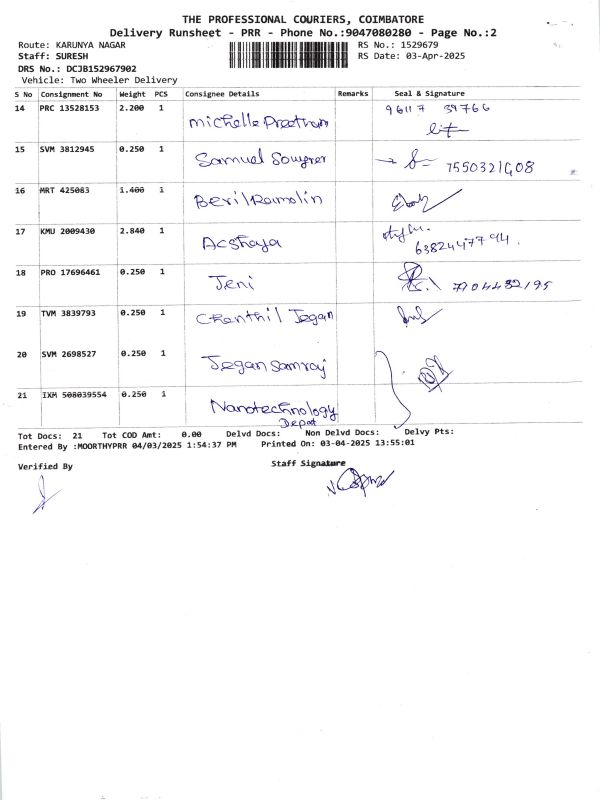 THE PROFESSIONAL COURIERS, COIMBATORE
Delivery Runsheet - PRR - Phone No.:9047080280 - Page No.:2
Route: KARUNYA NAGAR RS No.: 1529679
Staff: SURESH RS Date: 03-Apr-2025
DRS No.: DCJB152967902
Vehicle: Two Wheeler Delivery
S No Consignment No Weight PCS Consignee Details Remarks Seal & Signature
14 PRC 13528153 2.200 1 Michelle Preetham 96117 39766
15 SVM 3812945 0.250 1 Samuel
16 MRT 425083 1.400 1 Beril Ramolin
17 KMU 2009430 2.840 1 Acshaya 6382447794.
18 PRO 17696461 0.250 1 Jeni 7904482195
19 TVM 3839793 0.250 1 Chenthil Jegan
20 SVM 2698527 0.250 1 Jegan Samraj
21 IXM 508039554 0.250 1 Nanotechnology
Depot
Tot Docs: 21 Tot COD Amt: 0.00 Delvd Docs: Non Delvd Docs: Delvy Pts:
Entered By :MOORTHYPRR 04/03/2025 1:54:37 PM Printed On: 03-04-2025 13:55:01
Verified By Staff Signature